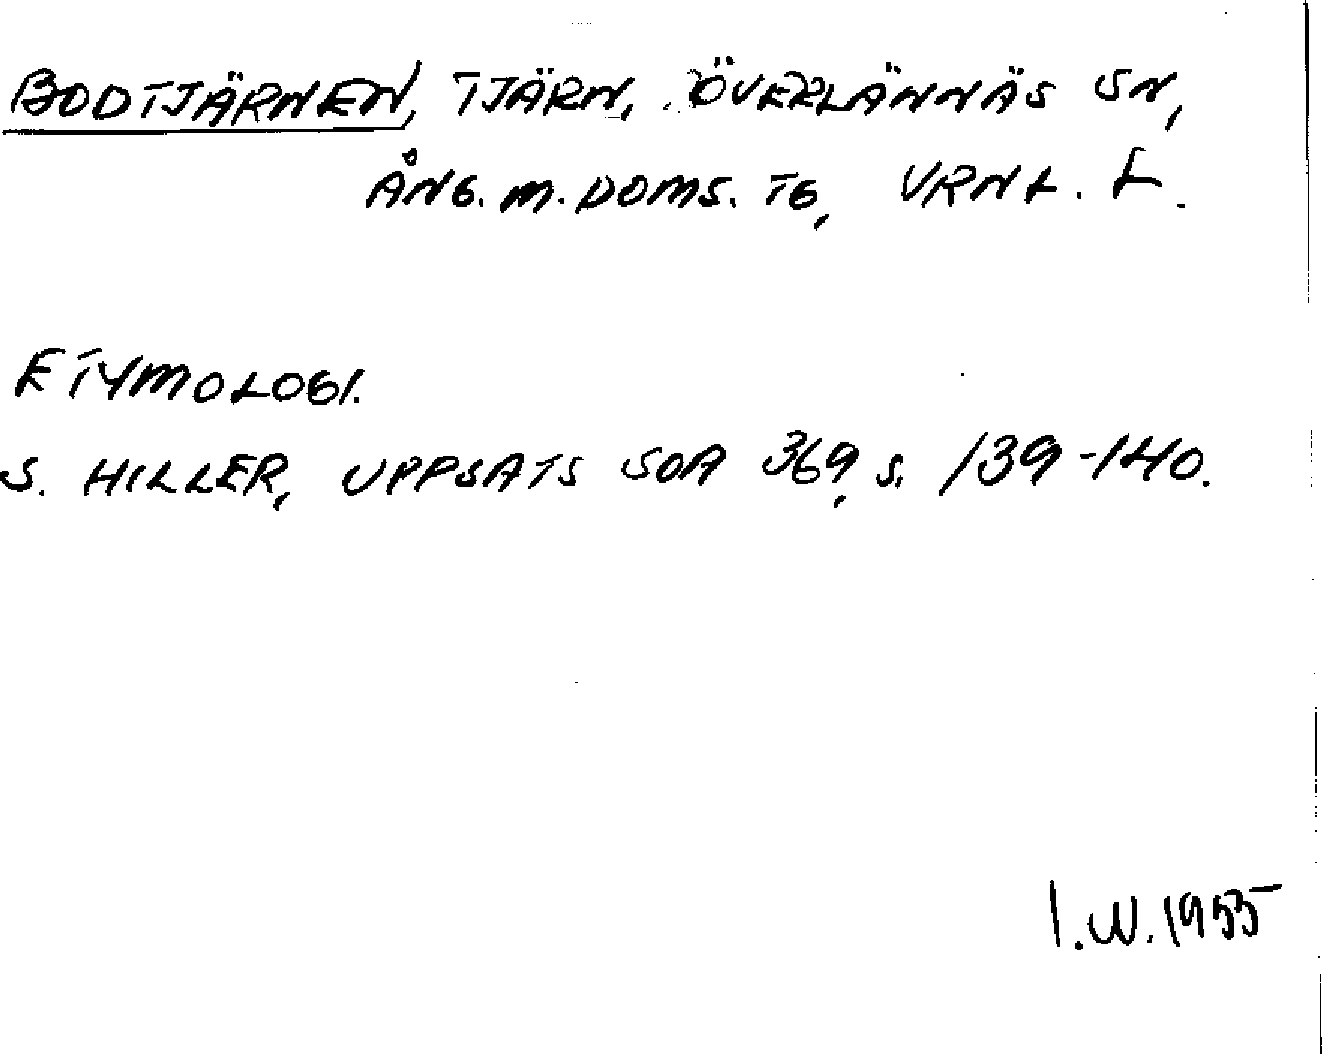 BODTJÄRNEN, TJÄRN, ÖVERLÄNNÄS SN,
ÅNG. M. DOMS. TG, VRNL. L.
ETYMOLOGI.
S. HILLER, UPPSATS SOA 369, S. 139-140.
I.W. 1955